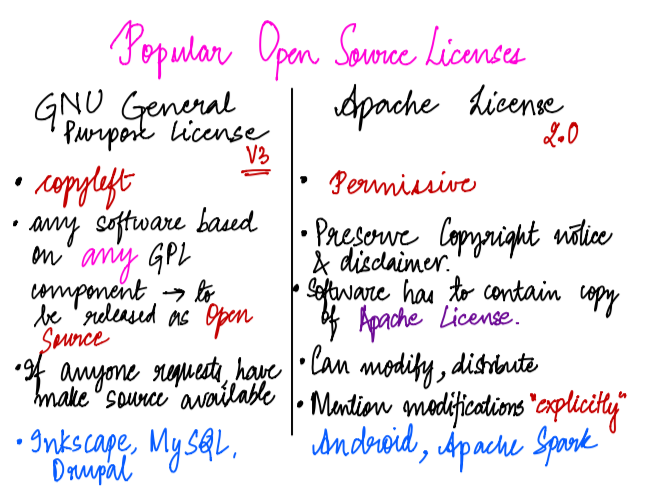 Popular Open Source Licenses
GNU General
Purpose License
V3
• copyleft
• any software based
on any GPL
component → to
be released as Open
Source
• If anyone requests, have
make source available
• Inkscape, MySQL,
Drupal
Apache License
2.0
• Permissive
• Preserve Copyright notice
& disclaimer.
• Software has to contain copy
of Apache License.
• Can modify, distribute
• Mention modifications "explicitly"
Android, Apache Spark